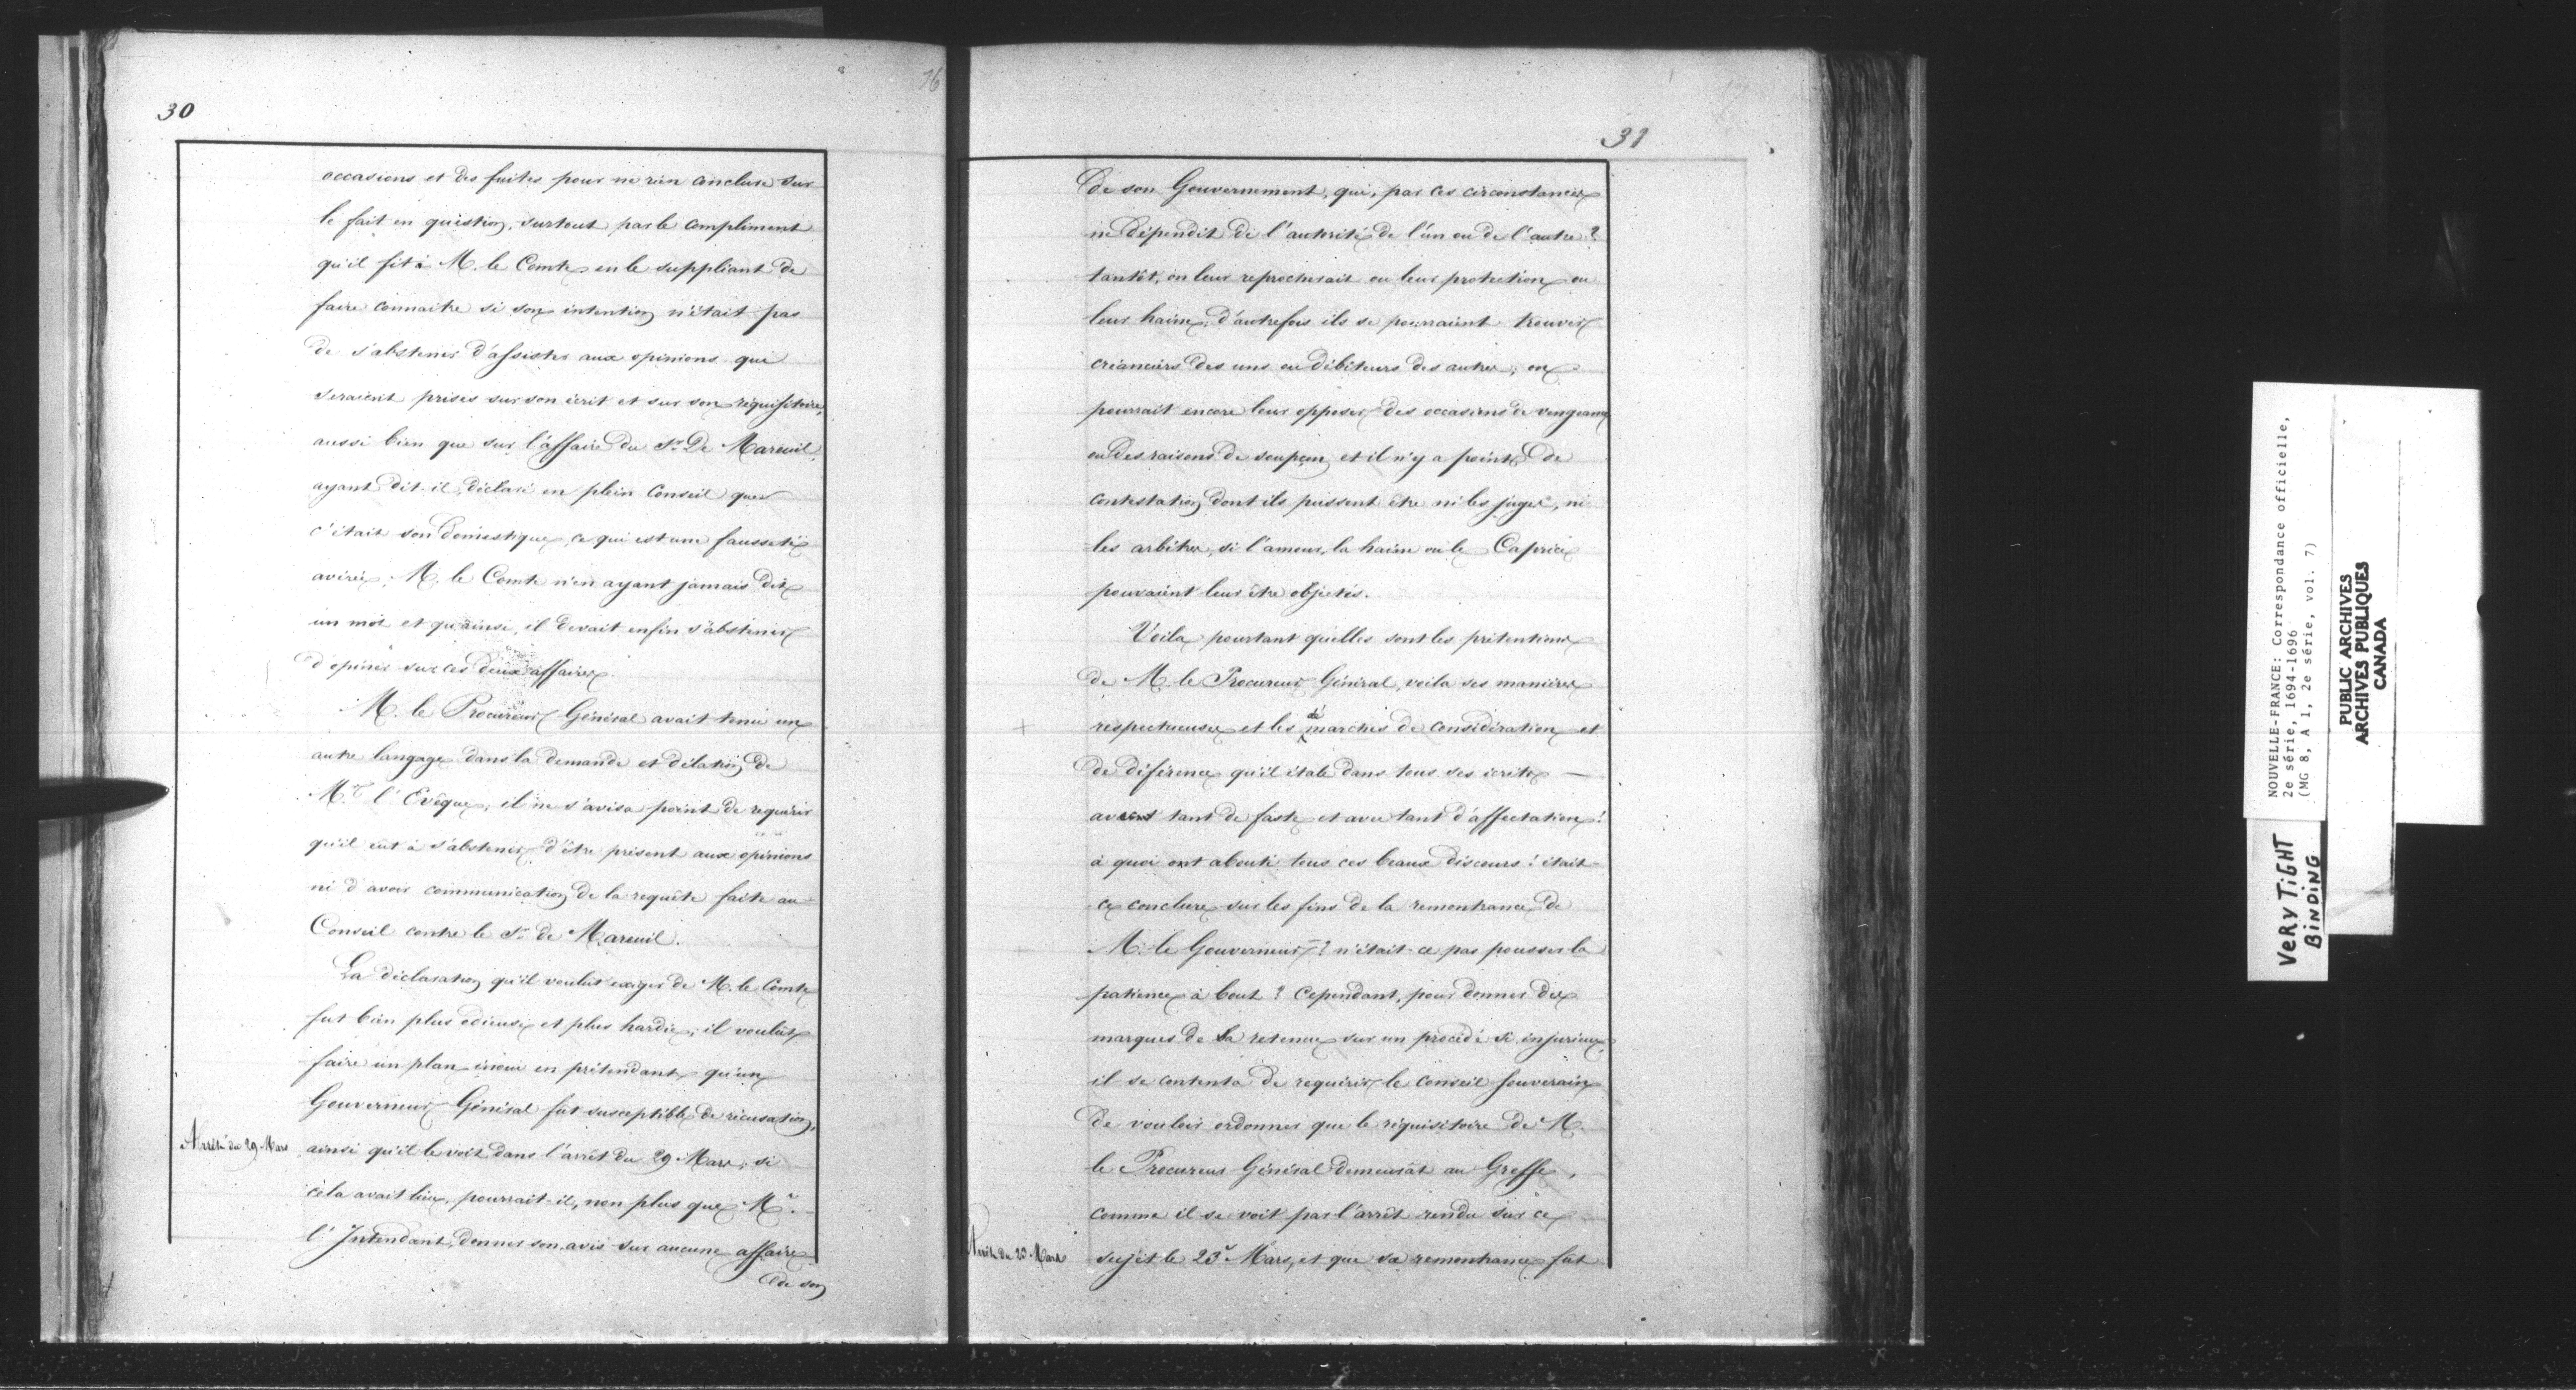 30
16
occasions et des fuites pour ne rien conclure sur
le fait en question, surtout par le compliment
qu'il fit à M. le Comte en le suppliant de
faire connaitre si son intention n'était pas
de s'abstenir d'assister aux opinions qui
seraient prises sur son écrit et sur son réquisitoire,
aussi bien que sur l'affaire du Sr. De Mareuil,
ayant dit-il, déclaré en plein Conseil que
c'était son domestique, ce qui est une fausseté
avérée; M. le Comte n'en ayant jamais dit
un mot et qu'ainsi, il devait enfin s'abstenir
d'opiner sur ces deux affaires.
M. le Procureur Général avait tenu un
autre langage dans la demande et délation de
Mr. l'Evêque; il ne s'avisa point de requérir
qu'il eut à s'abstenir d'être présent aux opinions
ni d'avoir communication de la requête faite au
Conseil contre le Sr. de Mareuil.
La déclaration qu'il voulut exiger de M. le Comte
fut bien plus odieuse et plus hardie; il voulût
faire un plan inoui en prétendant qu'un
Gouverneur Général fut susceptible de récusation,
Arrêt du 29 Mars
ainsi qu'il se voit dans l'arrêt du 29 Mars; si
cela avait lieu, pourrait-il, non plus que Mr.
l'Intendant, donner son avis sur aucune affaire
de son
31
de son Gouvernement, qui, par ces circonstances
ne dépendit de l'autorité de l'un ou de l'autre?
tantôt, on leur reprocherait ou leur protection ou
leur haine; d'autrefois ils se pourraient trouver
créanciers des uns ou débiteurs des autres; on
pourrait encore leur opposer des occasions de vengeance
ou des raisons de soupçon, et il n'y a point de
contestation dont ils pussent être ni les juges, ni
les arbitres, si l'amour, la haine ou le Caprice
pouvaient leur être objectés.
Voila pourtant quelles sont les prétentions
de M. le Procureur Général, voila ses manières
+ respectueuses et les démarches de considération et
de déférence qu'il étale dans tous ses écrits —
avec tant de faste et avec tant d'affectation!
à quoi ont abouti tous ces beaux discours! était-
ce conclure sur les fins de la remontrance de
M. le Gouverneur? n'était-ce pas pousser la
patience à bout? Cependant, pour donner des
marques de sa retenue sur un procédé si injurieux,
il se contenta de requérir le Conseil Souverain
de vouloir ordonner que le réquisitoire de M.
le Procureur Général demeurât au Greffe,
comme il se voit par l'arrêt rendu sur ce
Arrêt du 23 Mars
sujet le 23e Mars, et que sa remontrance fut
NOUVELLE-FRANCE: Correspondance officielle,
2e série, 1694-1696
(MG 8, A 1, 2e série, vol. 7)
PUBLIC ARCHIVES
ARCHIVES PUBLIQUES
CANADA
VERY TiGHT
BiNDiNG